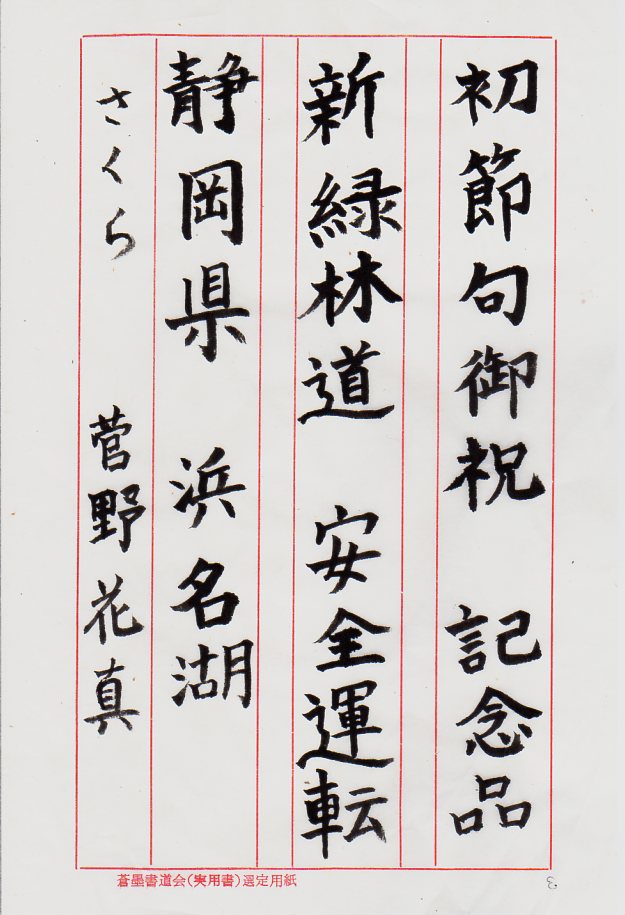 初節句御祝　記念品
新緑林道　安全運転
静岡県　浜名湖
さくら　菅野花真
蒼墨書道会(実用書)選定用紙